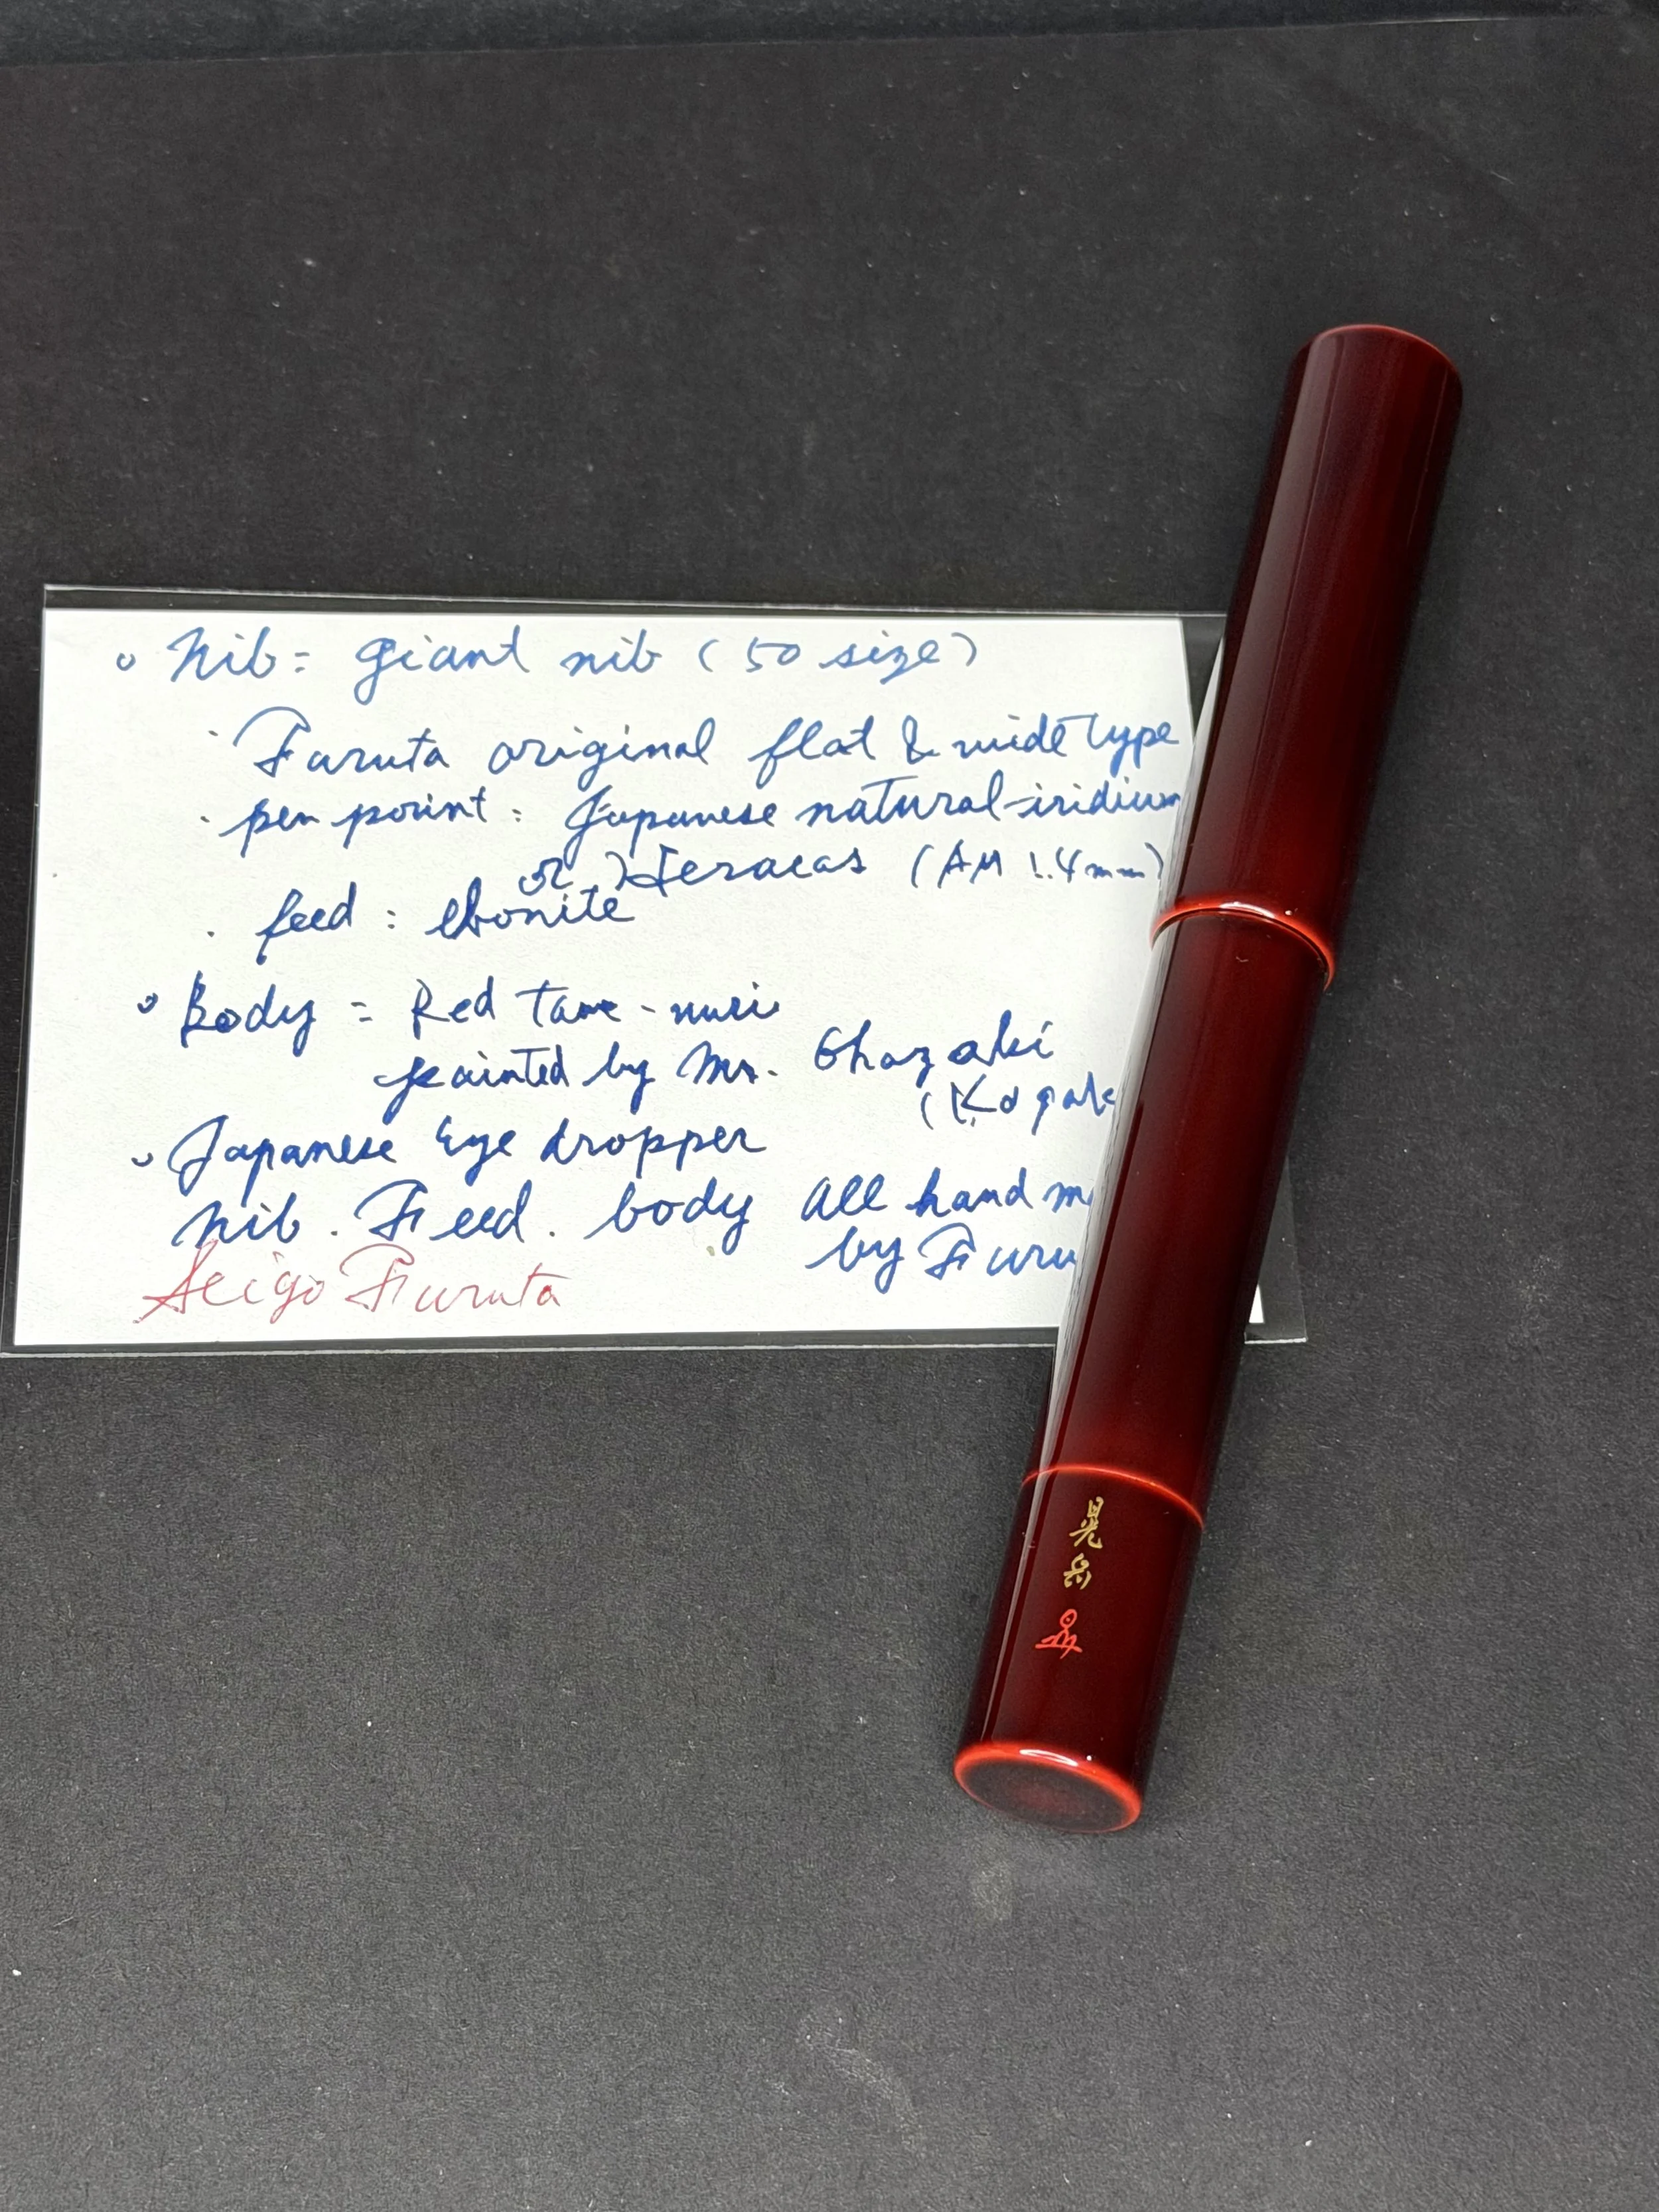 Nib = giant nib (50 size)
・Furuta original flat & wide type
・pen point : Japanese natural-iridium
or Heraeas (AM 1.4mm)
・feed : ebonite
Body = Red Tame-nuri
painted by Mr. Ohazaki
(Kogak
Japanese Eye dropper
Nib. Feed. body All hand m
by Furu
Seigo Furuta
晃岳